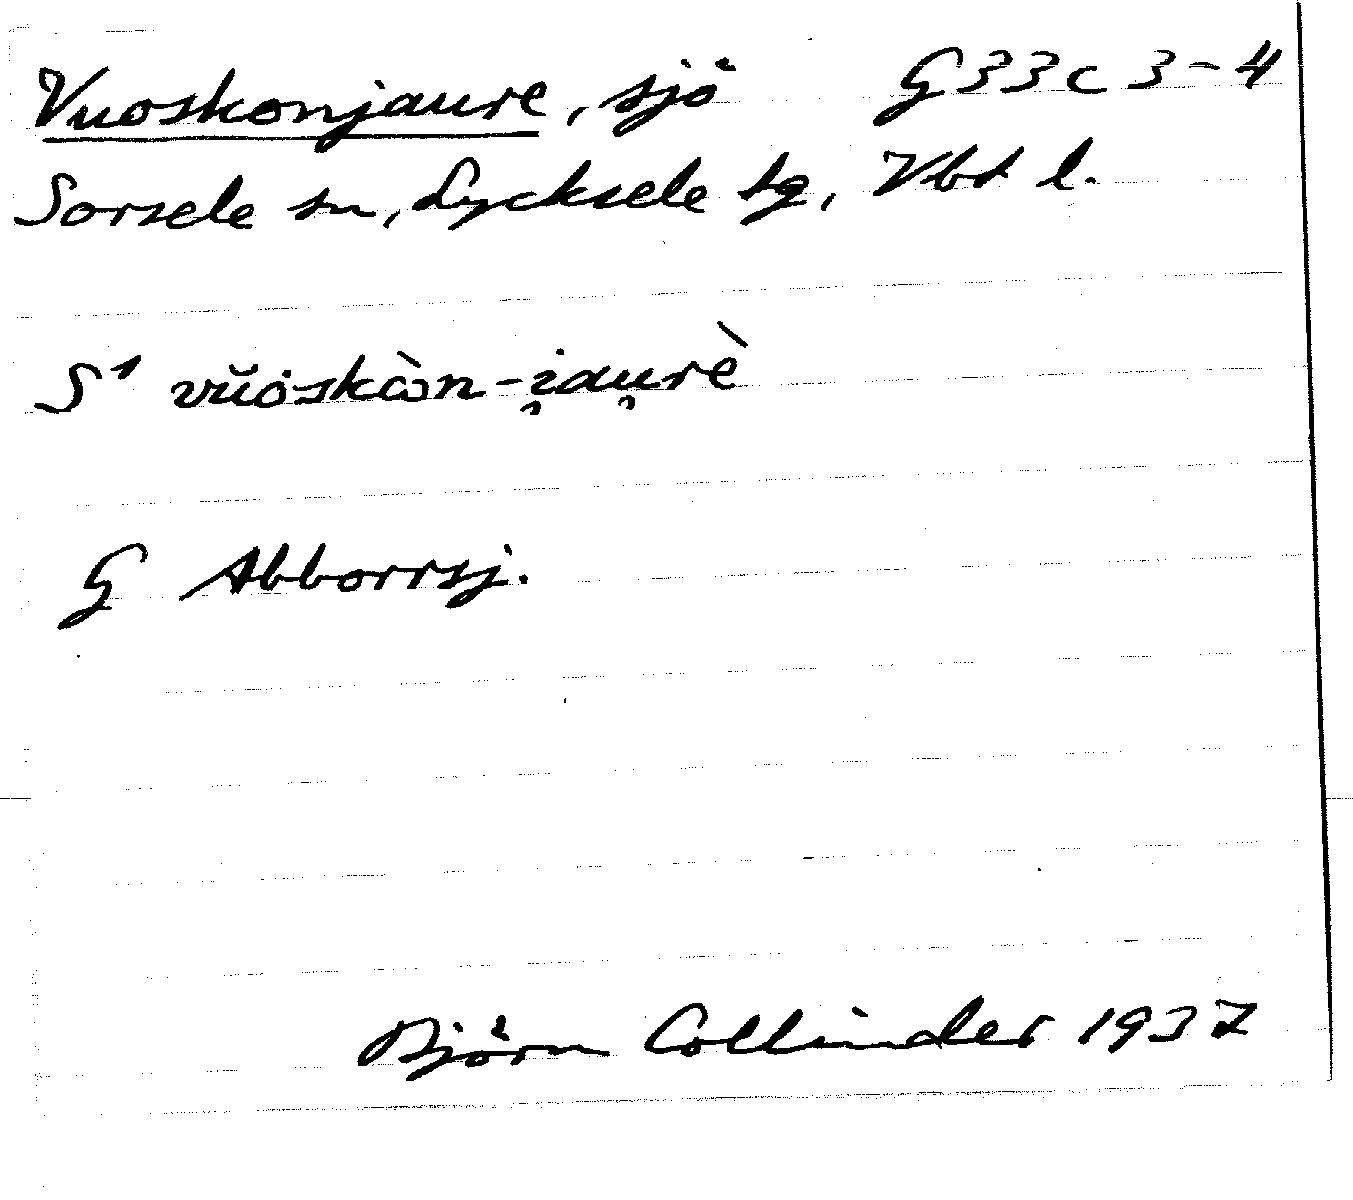 Vuoskonjaure, sjö G33c 3-4
Sorsele sn, Lycksele tg, Vbt l.
S1 vŭȯskὼn-i̯au̯rè
G Abborrsj.
Björn Collinder 1937